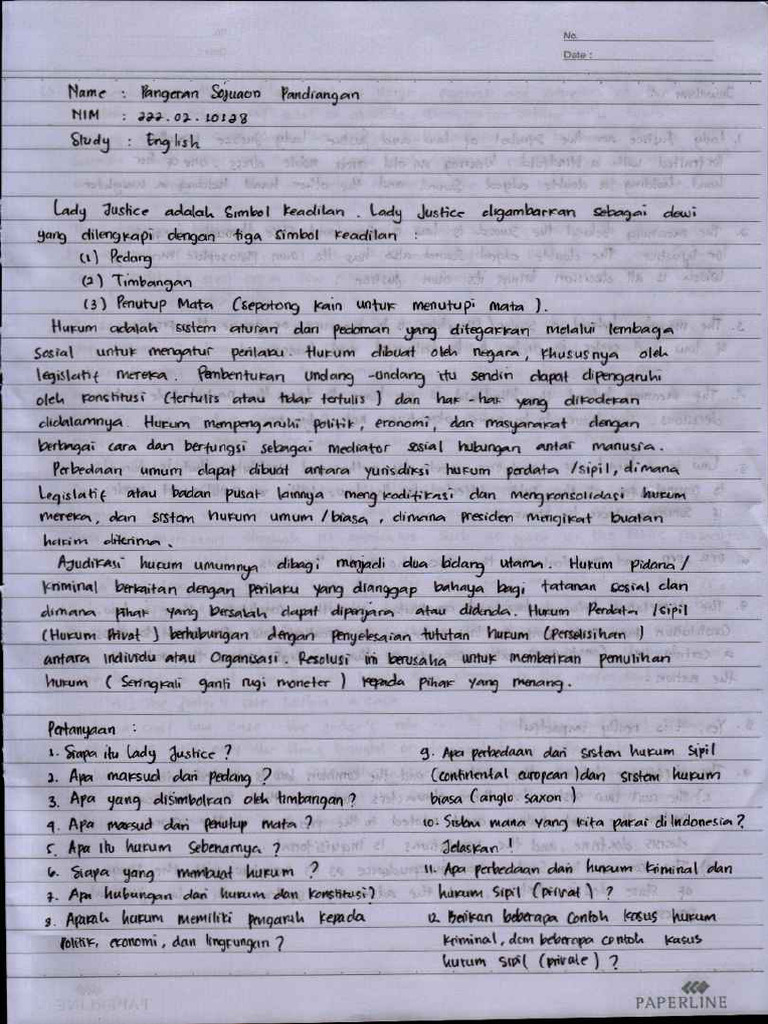 No.
Date :
Name : Pangeran Sojuaon Pandiangan
NIM : 222.02.10128
Study : English
Lady Justice adalah Simbol Keadilan. Lady Justice digambarkan sebagai dewi
yang dilengkapi dengan tiga Simbol Keadilan :
(1) Pedang
(2) Timbangan
(3) Penutup Mata (sepotong kain untuk menutupi mata).
Hukum adalah sistem aturan dan pedoman yang ditegakkan melalui lembaga
Sosial untuk mengatur perilaku. Hukum dibuat oleh negara, khususnya oleh
legislatif mereka. Pembentukan undang-undang itu sendiri dapat dipengaruhi
oleh konstitusi (tertulis atau tidak tertulis) dan hak-hak yang dikodekan
didalamnya. Hukum mempengaruhi politik, ekonomi, dan masyarakat dengan
berbagai cara dan berfungsi sebagai mediator sosial hubungan antar manusia.
Perbedaan umum dapat dibuat antara yurisdiksi hukum perdata /sipil, dimana
Legislatif atau badan pusat lainnya mengkodifikasi dan mengkonsolidasi hukum
mereka, dan sistem hukum umum/biasa, dimana presiden mengikat buatan
hakim diterima.
Ajudikasi hukum umumnya dibagi menjadi dua bidang utama. Hukum Pidana/
Kriminal berkaitan dengan perilaku yang dianggap bahaya bagi tatanan sosial dan
dimana pihak yang bersalah dapat dipenjara atau didenda. Hukum Perdata /sipil
(Hukum Privat) berhubungan dengan Penyelesaian tututan hukum (Perselisihan)
antara individu atau Organisasi. Resolusi ini berusaha untuk memberikan pemulihan
hukum (Seringkali ganti rugi moneter) kepada pihak yang menang.
Pertanyaan :
1. Siapa itu Lady Justice ?
2. Apa maksud dari pedang ?
3. Apa yang disimbolkan oleh timbangan ?
4. Apa maksud dari penutup mata ?
5. Apa itu hukum Sebenarnya ?
6. Siapa yang membuat hukum ?
7. Apa hubungan dari hukum dan konstitusi ?
8. Apakah hukum memiliki pengaruh kepada
Politik, economi, dan lingkungan ?
9. Apa perbedaan dari sistem hukum sipil
(continental european) dan sistem hukum
biasa (anglo saxon)
10. Sistem mana yang kita pakai di Indonesia ?
Jelaskan !
11. Apa perbedaan dari hukum kriminal dan
hukum sipil (privat) ?
12. Berikan beberapa contoh kasus hukum
kriminal, dan beberapa contoh kasus
hukum sipil (private) ?
PAPERLINE